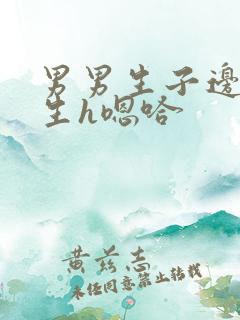 男男生子边
生h嗯哈
黄兹志
未经同意禁止转载